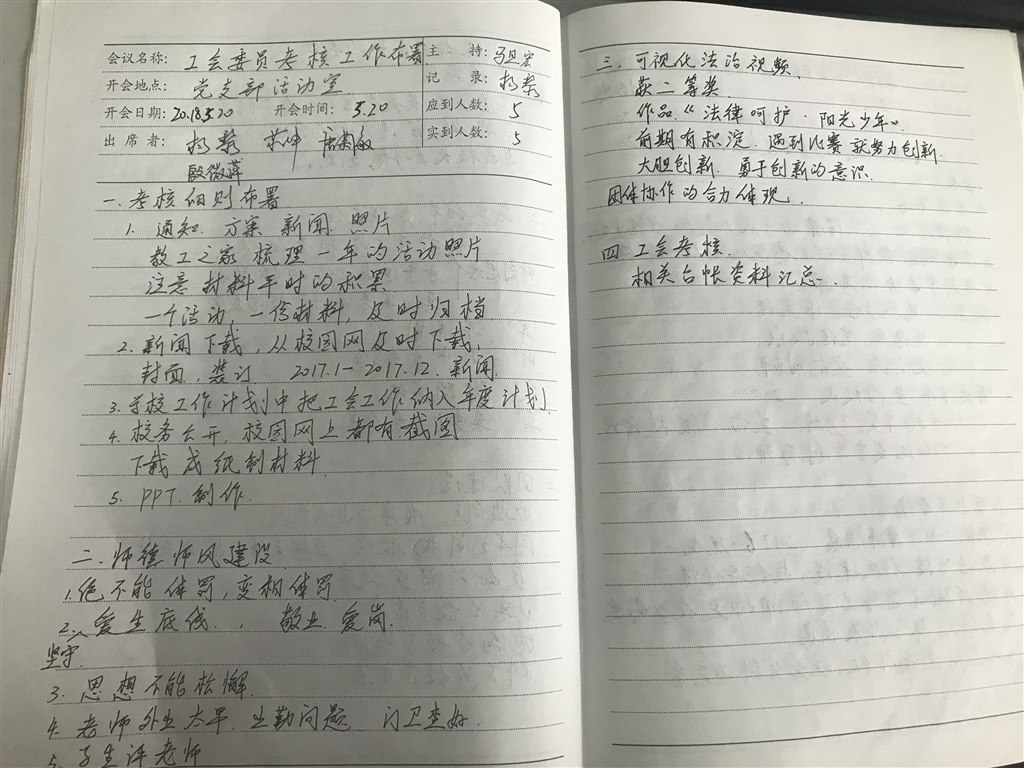 会议名称: 工会委员考核工作布署 主 持: 马旦宏
开会地点: 党支部活动室 记 录:
开会日期: 2018.3.20 开会时间: 3.20 应到人数: 5
出 席 者: 实到人数: 5
殷微萍
一. 考核细则布署
1. 通知. 方案 新闻. 照片
教工之家 梳理一年的活动照片
注意 材料平时的积累.
一个活动, 一份材料, 及时归档
2. 新闻下载, 从校园网及时下载,
封面, 装订 2017.1-2017.12. 新闻
3. 学校工作计划中把工会工作纳入年度计划
4. 校务公开, 校园网上都有截图
下载成纸制材料
5. PPT. 制作.
二. 师德师风建设
1. 绝不能体罚, 变相体罚
2. 爱生底线., 敬业 爱岗.
坚守
3. 思想不能松懈.
4. 老师外出太早. 出勤问题. 门卫查好.
5. 学生评老师
三. 可视化法治视频.
获二等奖.
作品.《法律呵护·阳光少年》.
前期有积淀. 遇到比赛就努力创新.
大胆创新. 勇于创新的意识.
团体协作的合力体现.
四 工会考核.
相关台帐资料汇总.